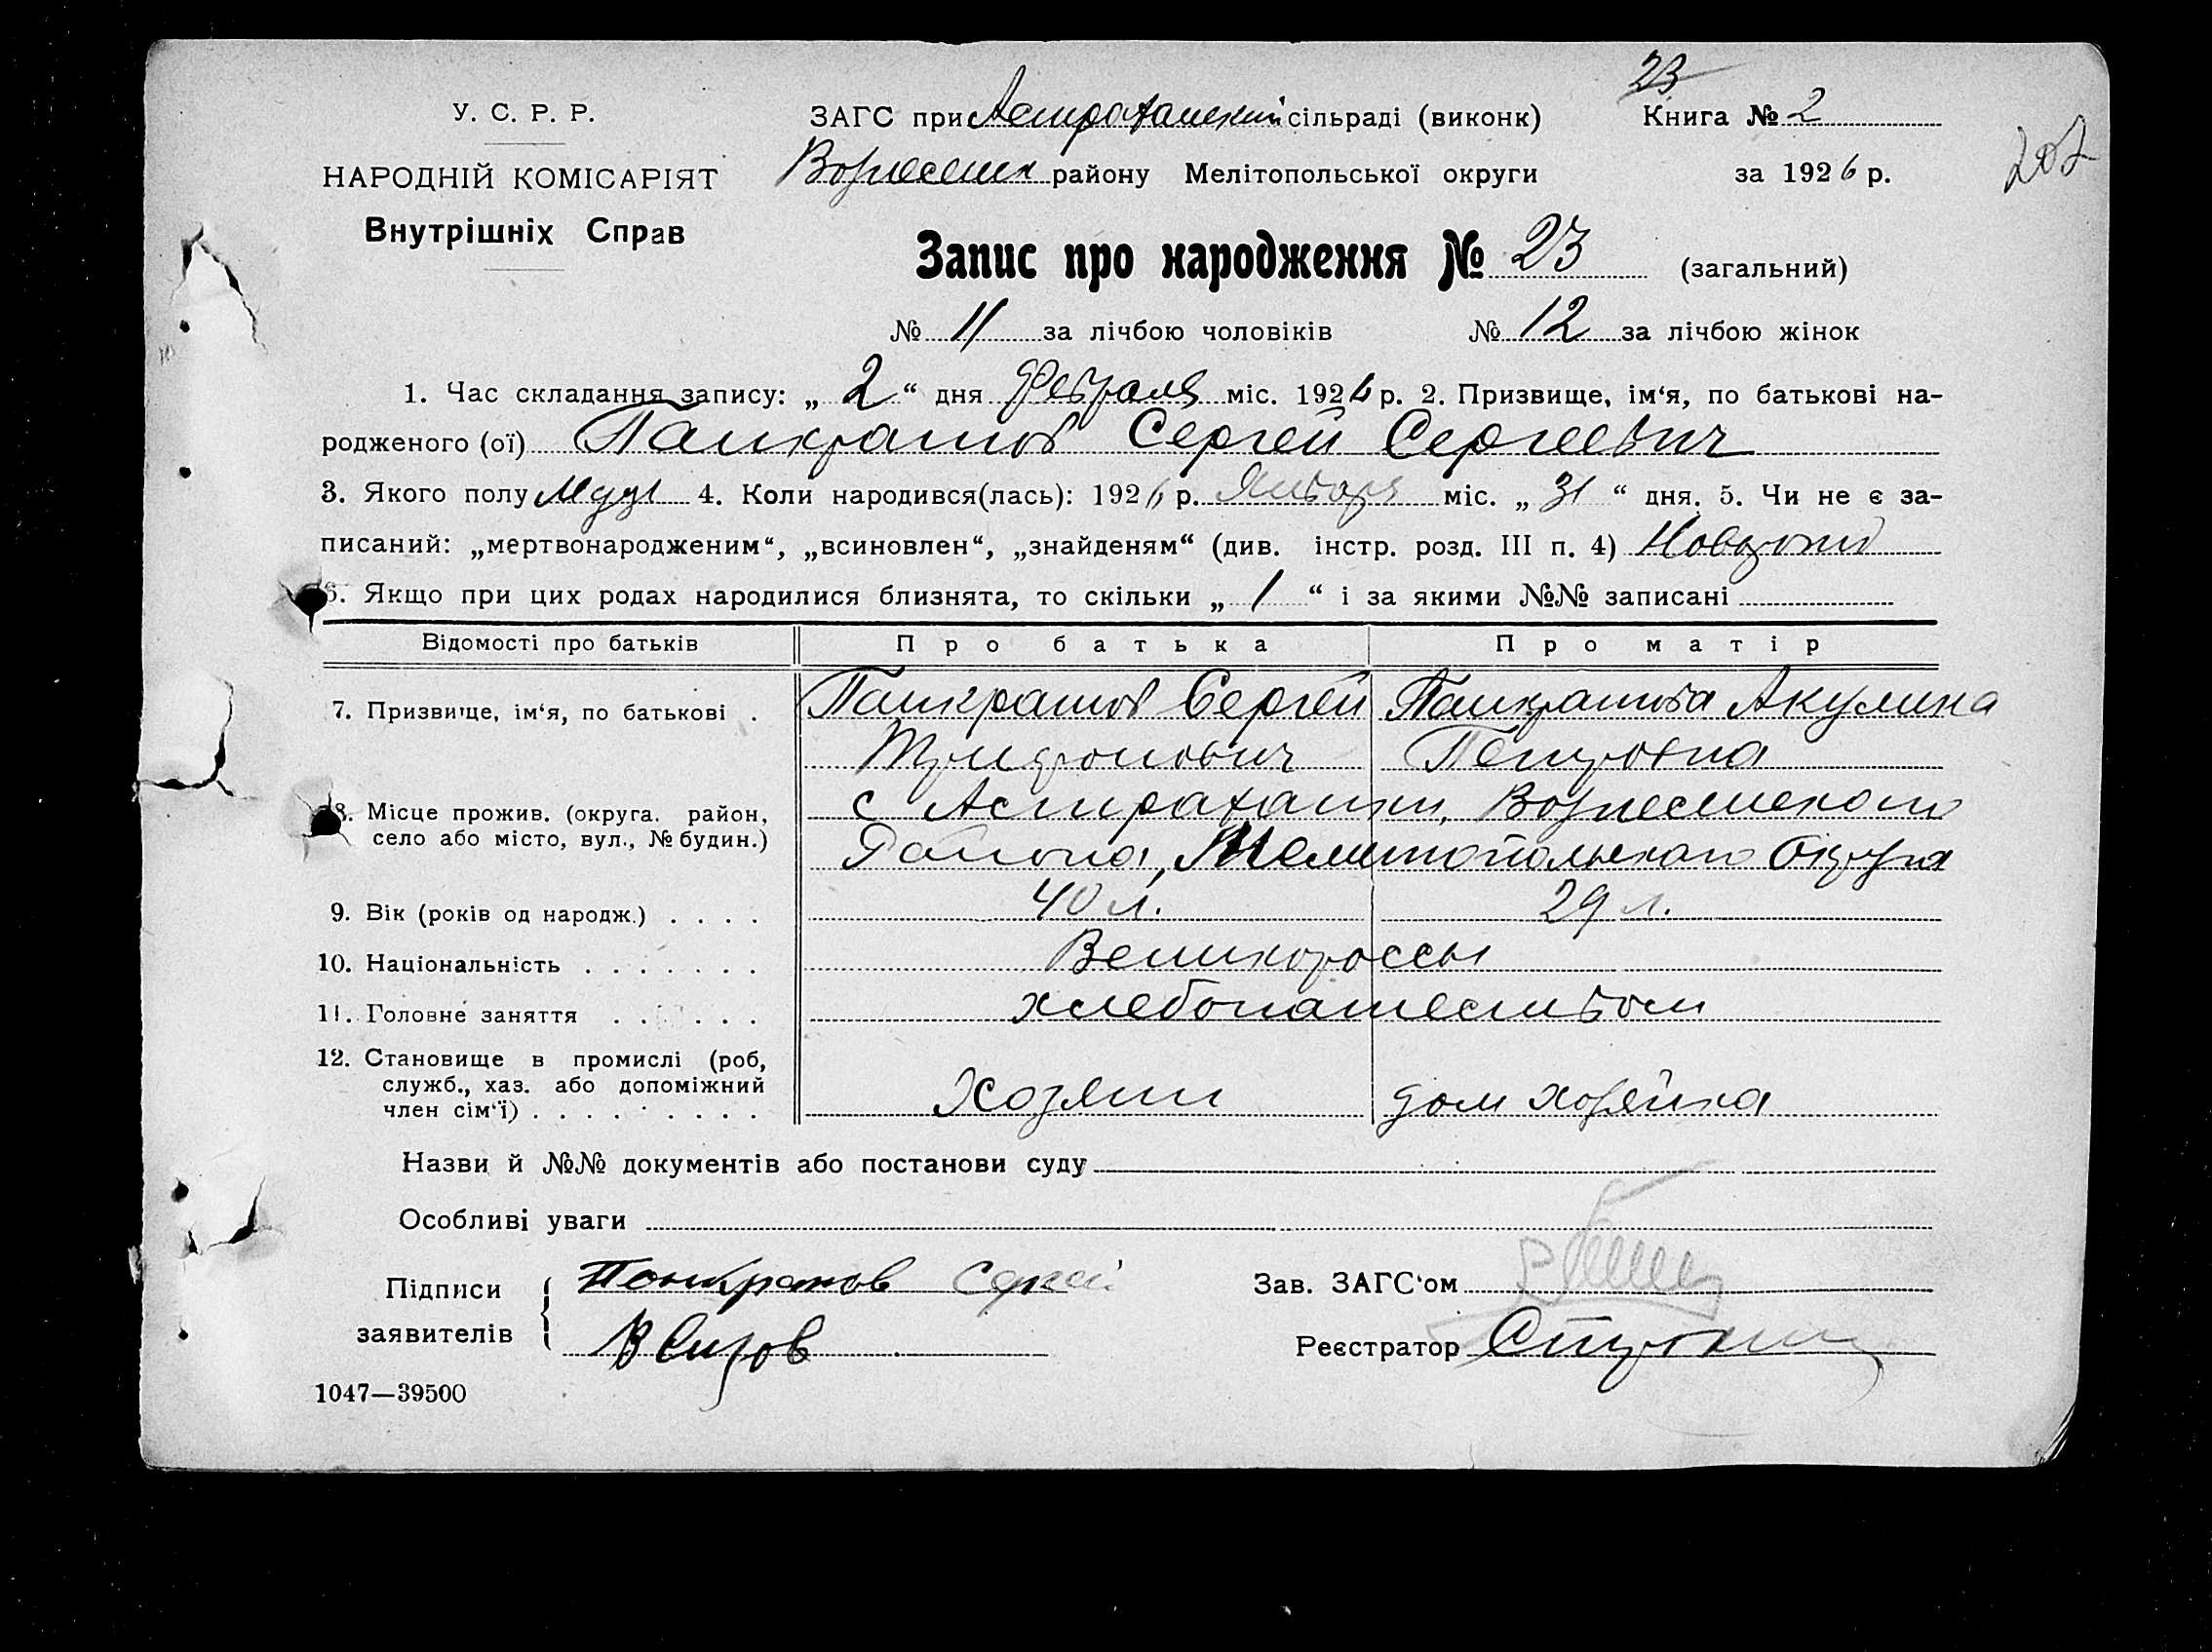 23
У. С. Р. Р. ЗАГС при Астраханский сільраді (виконк) Книга № 2
207
НАРОДНІЙ КОМІСАРІЯТ Вознесенск району Мелітопольської округи за 1926 р.
Внутрішніх Справ
Запис про народження № 23 (загальний)
№ 11 за лічбою чоловіків № 12 за лічбою жінок
1. Час складання запису: „ 2 “ дня Февраля міс. 1926 р. 2. Призвище, ім‘я, по батькові на-
родженого (ої) Панкратов Сергей Сергеевич
3. Якого полу Муз 4. Коли народився(лась): 1926 р. Января міс. „ 31 “ дня. 5. Чи не є за-
писаний: „мертвонародженим“, „всиновлен“, „знайденям“ (див. інстр. розд. III п. 4)
6. Якщо при цих родах народилися близнята, то скільки „ 1 “ і за якими №№ записані
Відомості про батьків Про батька Про матір
7. Призвище, ім‘я, по батькові . Панкратов Сергей Панкратова Акулина
Трифонович Петровна
8. Місце прожив. (округа. район, с Астраханки, Вознесенского
село або місто, вул., № будин.) Района, Мелитопольского Округа
9. Вік (років од народж.) . . . . 40 л. 29 л.
10. Національність . . . . . . . Великороссы
11. Головне заняття . . . . . . хлебопашеством
12. Становище в промислі (роб,
служб., хаз. або допоміжний
член сім‘ї) . . . . . . . . . Хозяин дом хозяйка
Назви й №№ документів або постанови суду
Особливі уваги
Підписи Понкратов Сергей Зав. ЗАГС‘ом
заявителів В Сизов Реєстратор
1047—39500